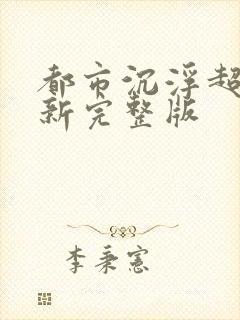 都市沉浮超
新完整版
李秉宪